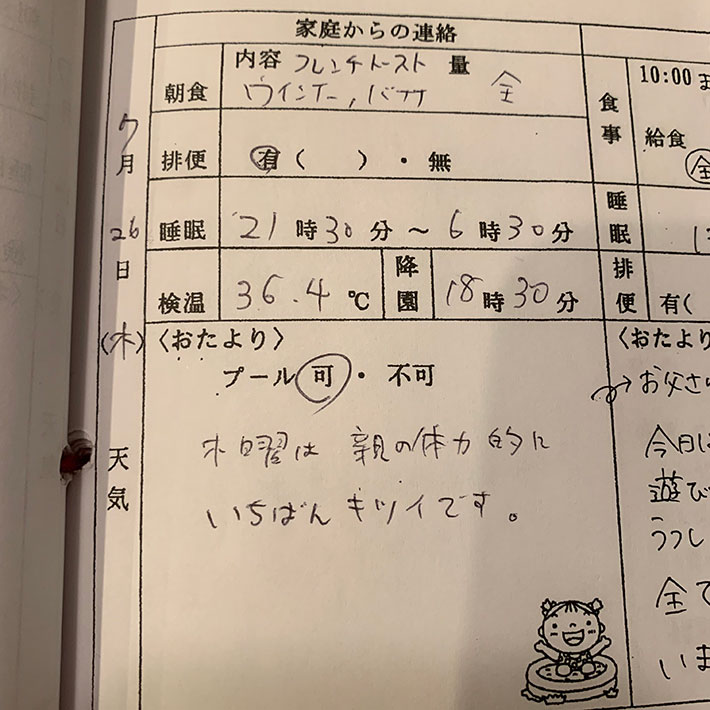 家庭からの連絡
朝食 内容 フレンチトースト 量
ウインナー, バナナ 全
排便 有( )・無
睡眠 21時30分 ~ 6時30分
検温 36.4℃ 降園 18時30分
7月
26日
(木)
天気
〈おたより〉
プール 可・不可
木曜は 親の体力的に
いちばん キツイです。
食事
10:00
給食
全
睡眠
排便 有(
〈おたより
→お父さ
今日
遊び
うつし
全て
いま